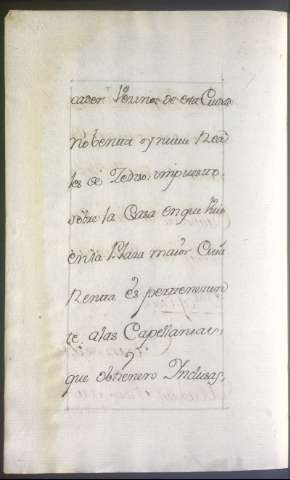 Vecinos de esta Ciudad
Nobenta y nueve Rea
les de Zenso, impuesto
sobre la Casa en que Vivo
en la Plaza maior Cuia
Renta es perteneciente
te a las Capellanias,
que obtienen Inclusas,